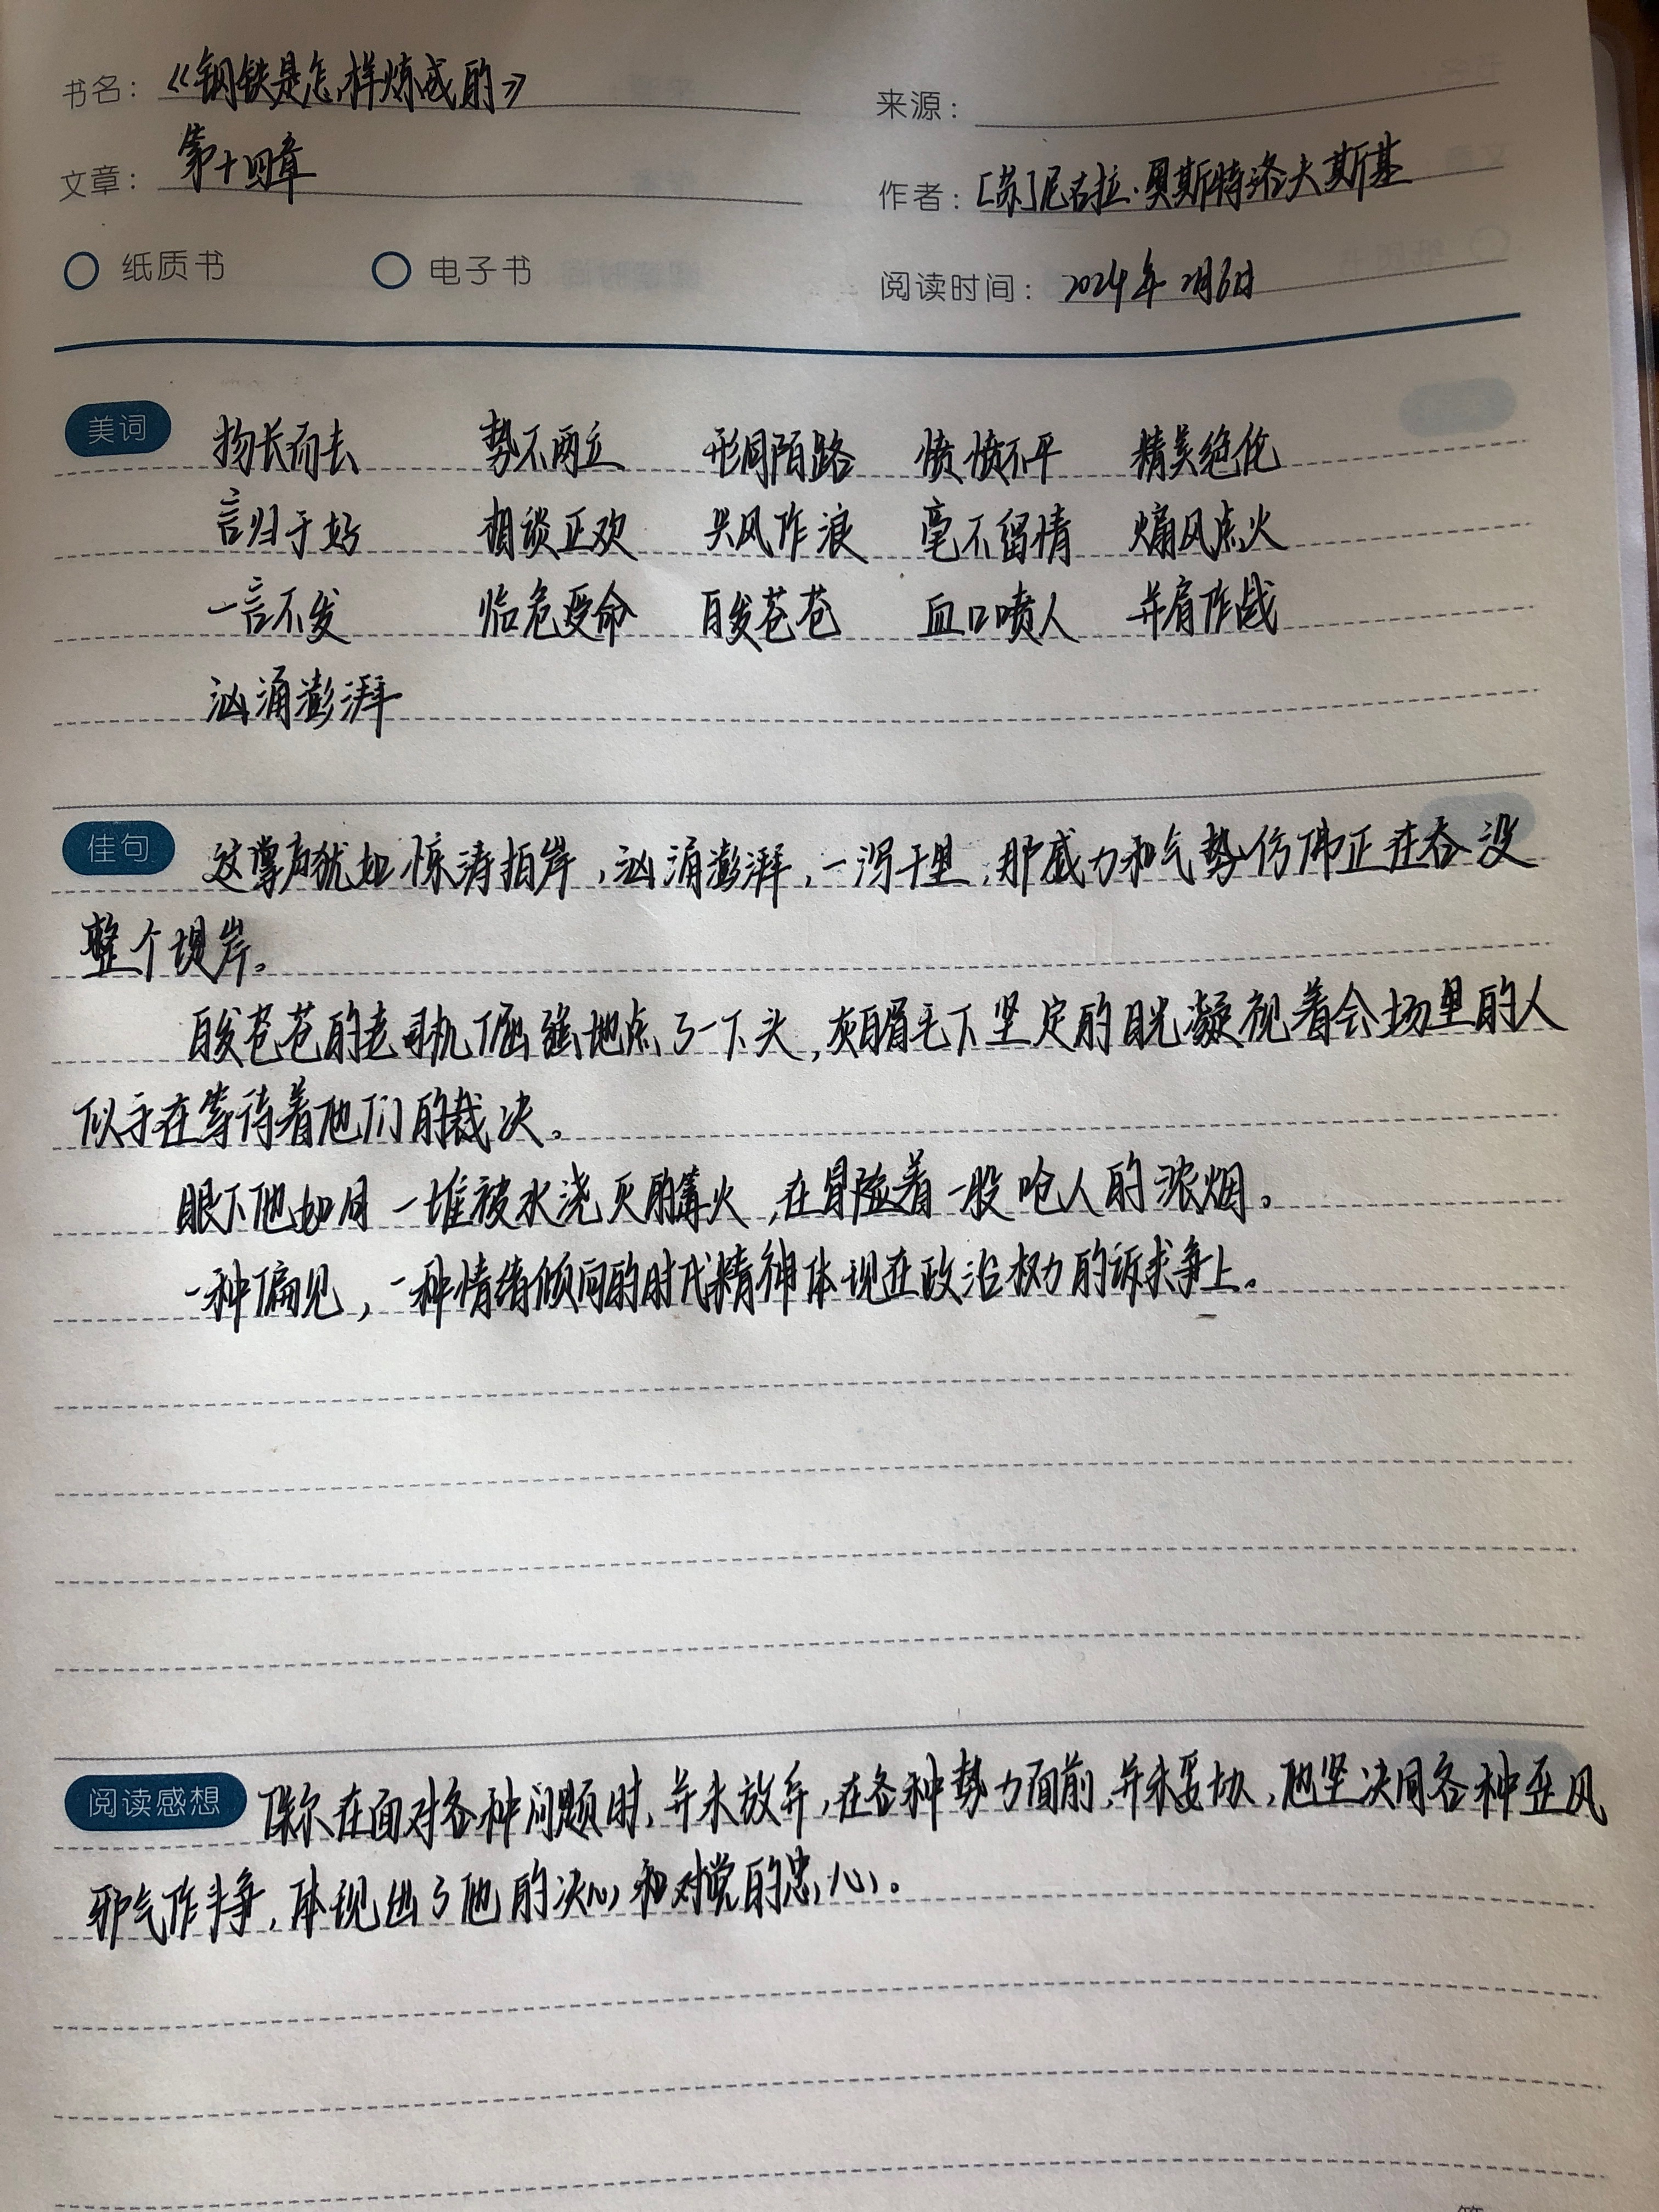 书名：《钢铁是怎样炼成的》 来源：
文章：第十四章 作者：[苏]尼古拉·奥斯特洛夫斯基
纸质书 电子书 阅读时间：2024年2月6日
美词 扬长而去 势不两立 形同陌路 愤愤不平 精美绝伦
言归于好 相谈正欢 兴风作浪 毫不留情 煽风点火
一言不发 临危受命 白发苍苍 血口喷人 并肩作战
汹涌澎湃
佳句 这掌声犹如惊涛拍岸，汹涌澎湃，一泻千里，那威力和气势仿佛正在吞没
整个坝岸。
白发苍苍的老司机倔强地点了一下头，灰眉毛下坚定的目光凝视着会场里的人
似乎在等待着他们的裁决。
眼下他如同一堆被水浇灭的篝火，在冒险着一股呛人的浓烟。
一种偏见，一种情绪倾向的时代精神体现在政治权力的诉求争上。
阅读感想 保尔在面对各种问题时，并未放弃，在各种势力面前，并未妥协，他坚决同各种歪风
邪气作斗争，体现出了他的决心和对党的忠心。